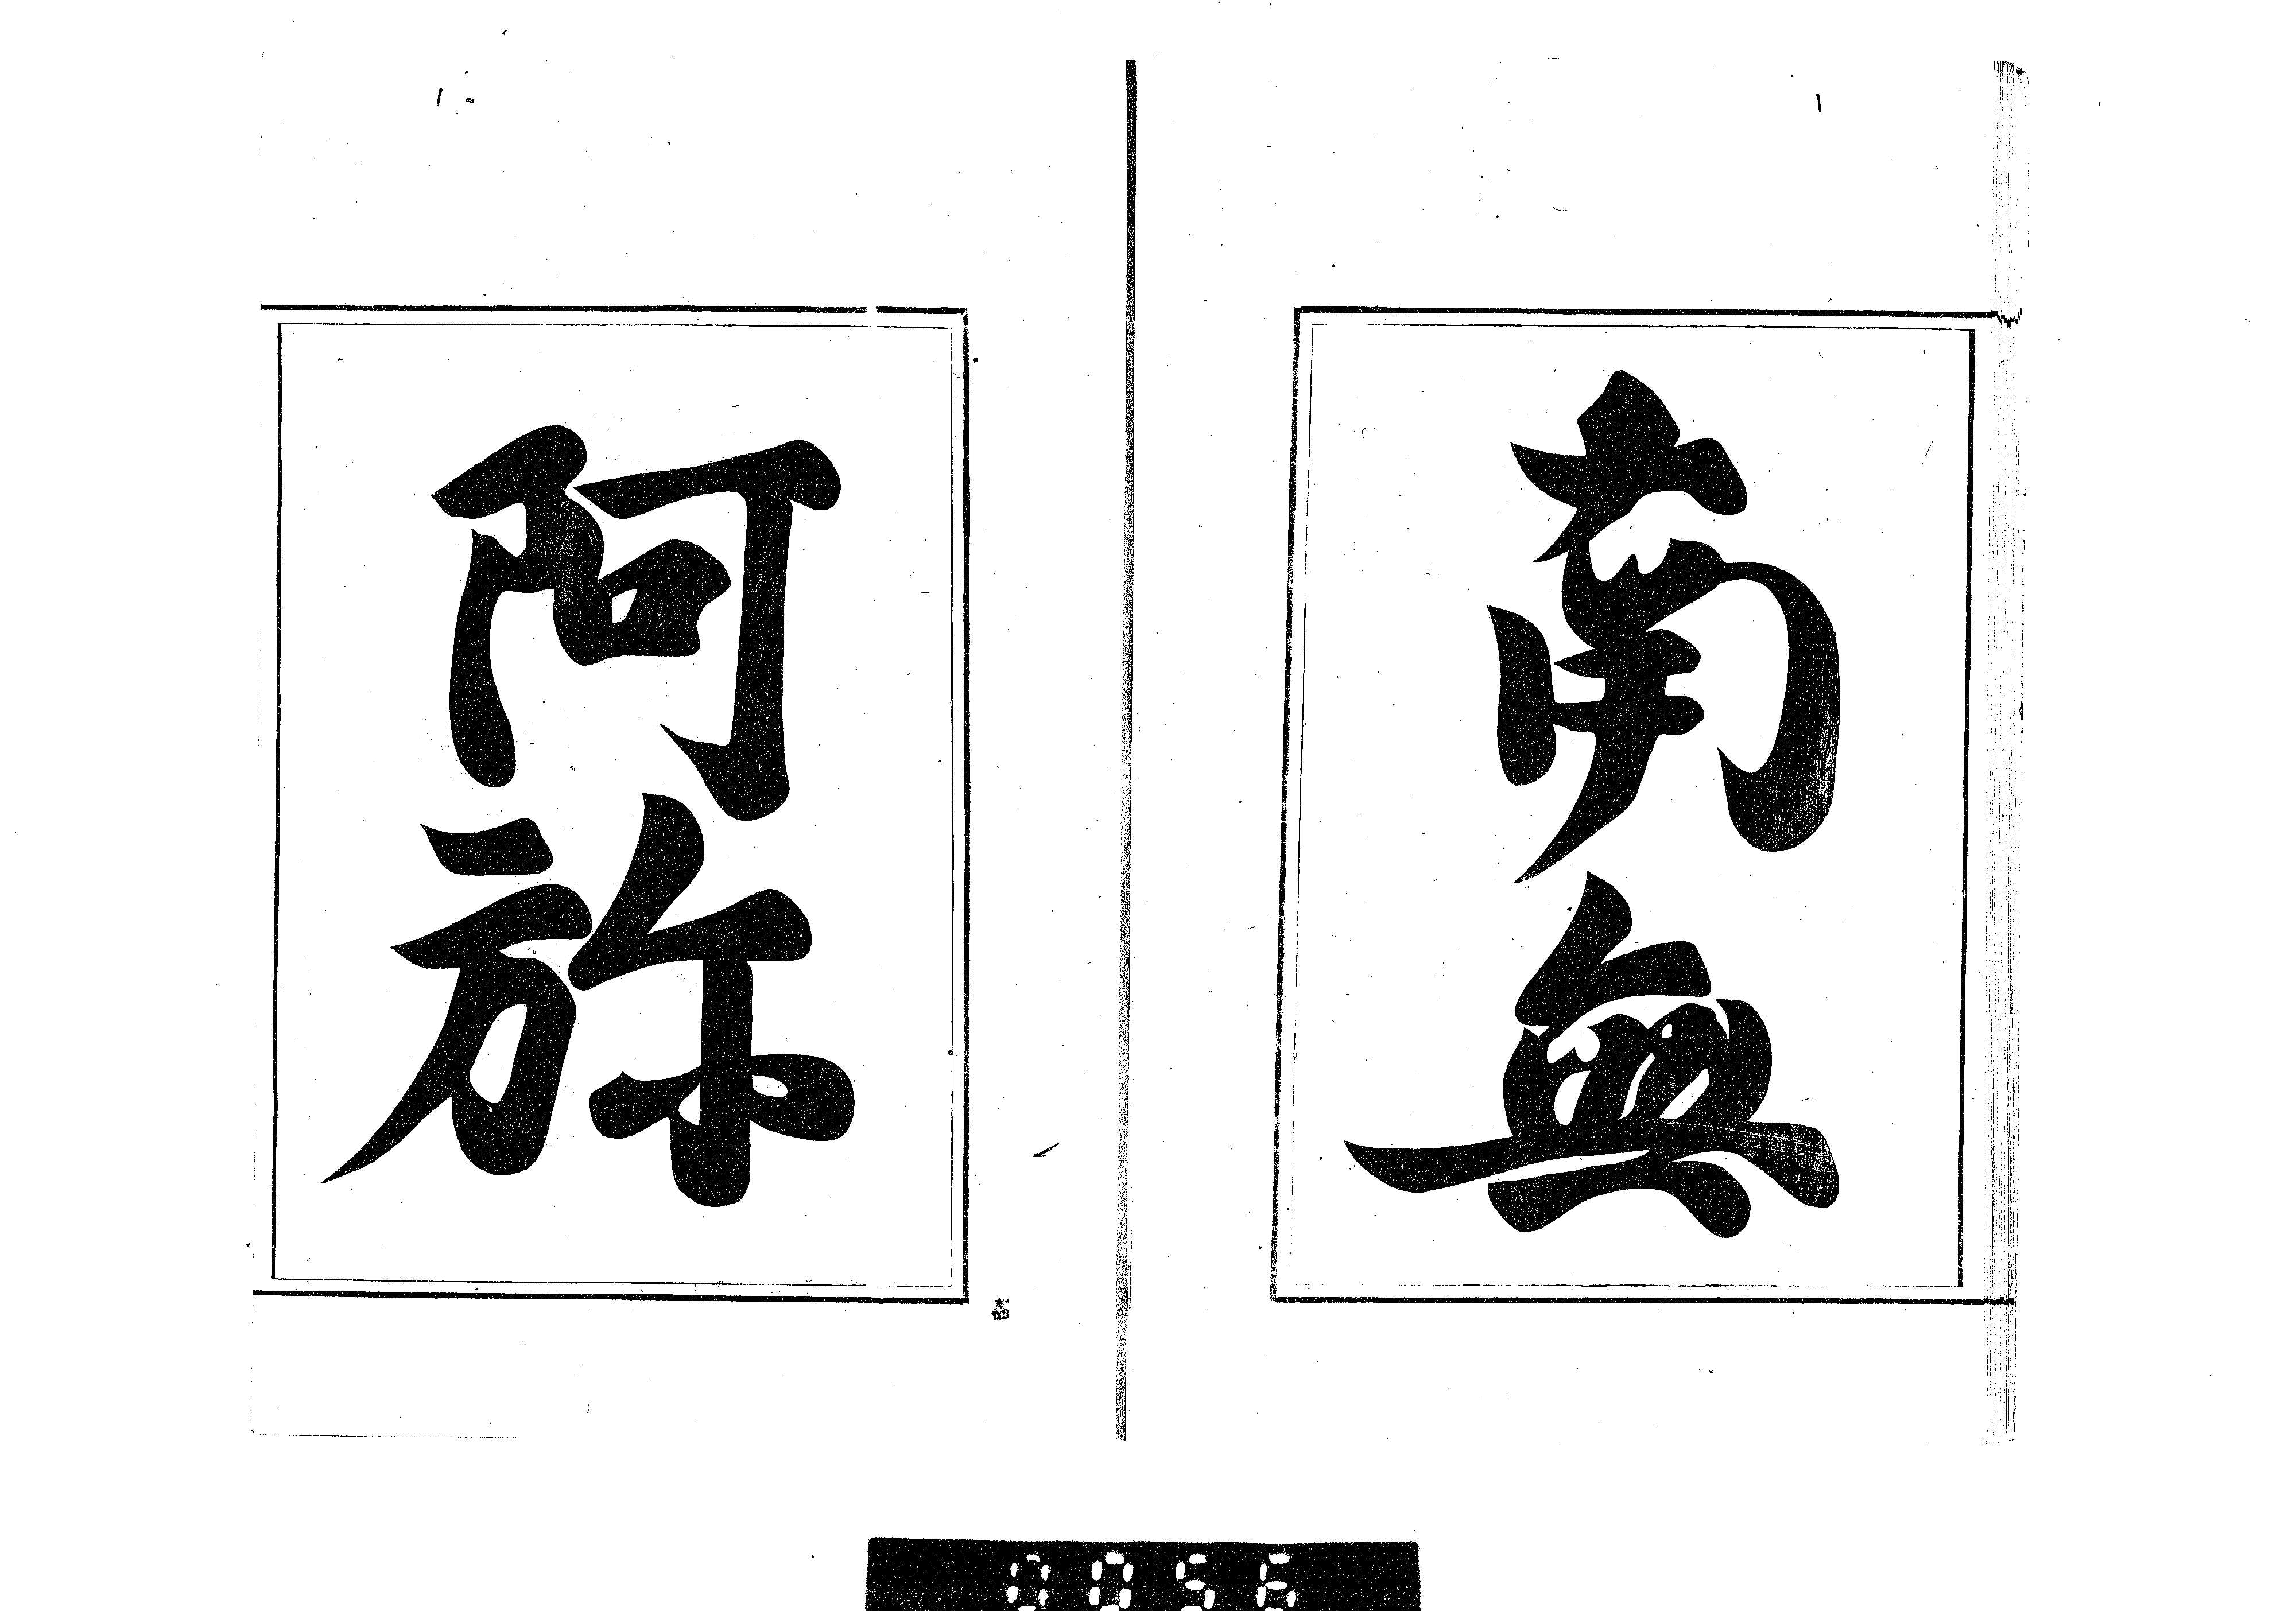 南無
阿弥